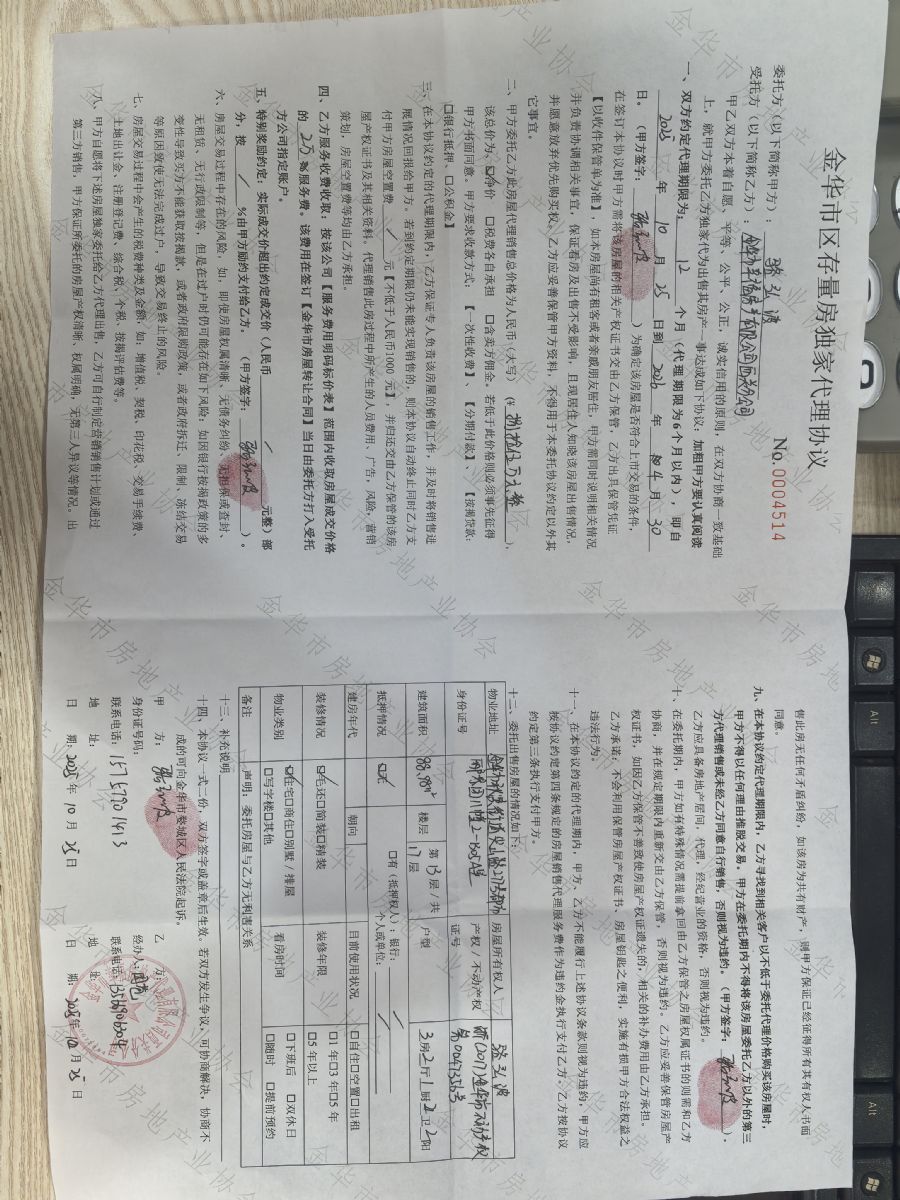 金华市区存量房独家代理协议
No.0004514
委托方（以下简称甲方）：
受托方（以下简称乙方）：
甲乙双方本着自愿、平等、公平、公正，诚实信用的原则，在双方协商一致基础
上，就甲方委托乙方独家代为出售其房产一事达成如下协议：加粗甲方要认真阅读
一、双方约定代理期限为： 12 个月（代理期限为6个月以内），即自
2025 年 10 月 25 日到 2026 年 4 月 30
日。（甲方签字： ）为确定该房屋是否符合上市交易的条件，
在签订本协议时甲方需将该房屋的相关产权证书交出乙方保管，乙方出具保管凭证
【以收件保管单为准】，如本房屋尚有租客或者亲戚朋友居住，甲方需同时说明相关情况
并负责协调相关事宜，保证看房及出售不受影响，且现居住人知晓该房屋出售情况，
并愿意放弃优先购买权。乙方应妥善保管甲方资料，不得用于本委托协议约定以外其
它事宜。
二、甲方委托乙方此房屋代理销售总价格为人民币（大写） （¥ ），
该总价为：☑净价 □税费各自承担 □含卖方佣金，若低于此价格则必须事先征得
甲方书面同意。甲方要求收款方式：【一次性收费】、【分期付款】、【按揭贷款：
□银行抵押、□公积金】
三、在本协议约定的代理期限内，乙方保证专人负责该房屋的销售工作，并及时将销售进
展情况回报给甲方。若到约定期限仍未能实现销售的，则本协议自动终止同时乙方支
付甲方房屋空置费 / 元【不低于人民币1000元】，并归还交由乙方保管的该房
屋产权证书及其相关资料。代理销售此房过程中所产生的人员费用，广告，风险，营销
策划，房屋空置费等均由乙方承担。
四、乙方服务收费收取，按该公司【服务费用明码标价表】范围内收取房屋成交价格
的 2万 %服务费。该费用在签订【金华市房屋转让合同】当日由委托方打入受托
方公司指定账户。
五、特别奖励约定：实际成交价超出约定成交价（人民币 / 元整）部
分，按 / %由甲方励约支付给乙方。（甲方签字： ）。
六、房屋交易过程中存在的风险，如，即使房屋权属清晰，无债务纠纷，无担保或查封、
无租赁，无行政限制等，但是在过户时仍可能存在如下风险：如因银行按揭政策的多
变性导致买方不能获取按揭款，或者政府限购政策，或者政府拆迁、限制、冻结交易
等原因致使无法完成过户，导致交易终止的风险。
七、房屋交易过程中会产生的税费种类及金额，如：增值税、契税、印花税、交易手续费、
土地出让金、注册登记费、综合税、个税、按揭评估费等。
八、甲方自愿将下述房屋独家委托给乙方代理出售，乙方可自行制定营销销售计划或通过
第三方销售，甲方保证所委托的房屋产权清晰，权属明确，无第三人异议等情况。出
售此房无任何矛盾纠纷，如该房为共有财产，则甲方保证已经征得所有共有权人书面
同意。
九、在本协议约定代理期限内，乙方寻找到相关客户以不低于委托代理价格购买该房屋时，
甲方不得以任何理由推脱交易。甲方在委托期内不得将该房屋委托乙方以外的第三
方代理销售或未经乙方同意自行销售，否则视为违约。（甲方签字： ）。
乙方应具备房地产居间，代理，经纪营业的资格，否则视为违约。
十、在委托期内，甲方如有特殊情况需提前拿回由乙方保管之房屋权属证书的则需和乙方
协商，并在规定期限内重新交由乙方保管，否则视为违约。乙方应妥善保管房屋产
权证书，如因乙方保管不善致使房屋产权证遗失的，相关的补办费用由乙方承担。
乙方承诺，不会利用保管房屋产权证书、房屋钥匙之便利，实施有损甲方合法权益之
违法行为。
十一、在本协议约定的代理期内，甲方、乙方不能履行上述协议条款则视为违约，甲方应
按协议约定第四条规定的房屋销售代理服务费作为违约金执行支付乙方，乙方按协议
约定第三条执行支付甲方。
十二、委托出售房屋的情况如下：
物业地址 房屋所有权人
身份证号 产权/不动产权证号
建筑面积 88.98m² 楼层 第13层/共17层 户型 3房2厅1厨2卫2阳
抵押情况 ☑无 □有（抵押权人）：银行： / 个人或单位： /
建房年代 朝向 目前使用状况 □自住□空置□出租
装修情况 ☑毛还□简装□精装 装修年限 □1年□3年□5年 □5年以上
物业类别 ☑住宅□商住□别墅/排屋 □写字楼□其他 看房时间 □下班后 □双休日 □随时 □提前预约
备注 声明：委托房屋与乙方无利害关系
十三、补充说明
十四、本协议一式二份，双方签字或盖章后生效。若双方发生争议，可协商解决，协商不
成的可向金华市婺城区人民法院起诉。
甲 方： 乙 方：
身份证号码： 经办人：
联系电话：15757901413 联系电话：
地 址： 地 址：
日 期：2025年10月25日 日 期：2025年10月25日